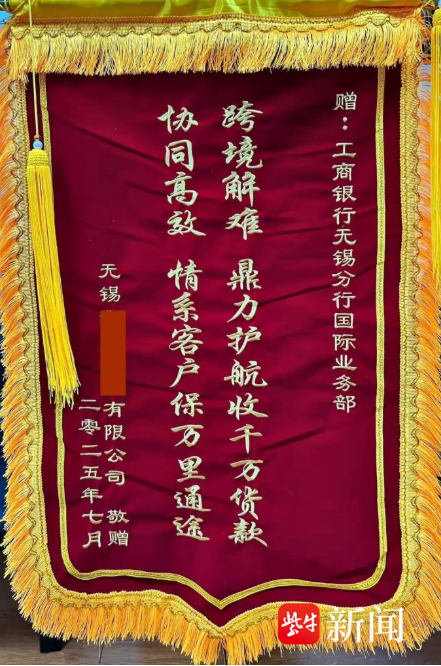 赠：工商银行无锡分行国际业务部
跨境解难 鼎力护航收千万货款
协同高效 情系客户保万里通途
无锡 有限公司 敬赠
二零二五年七月
紫牛新闻